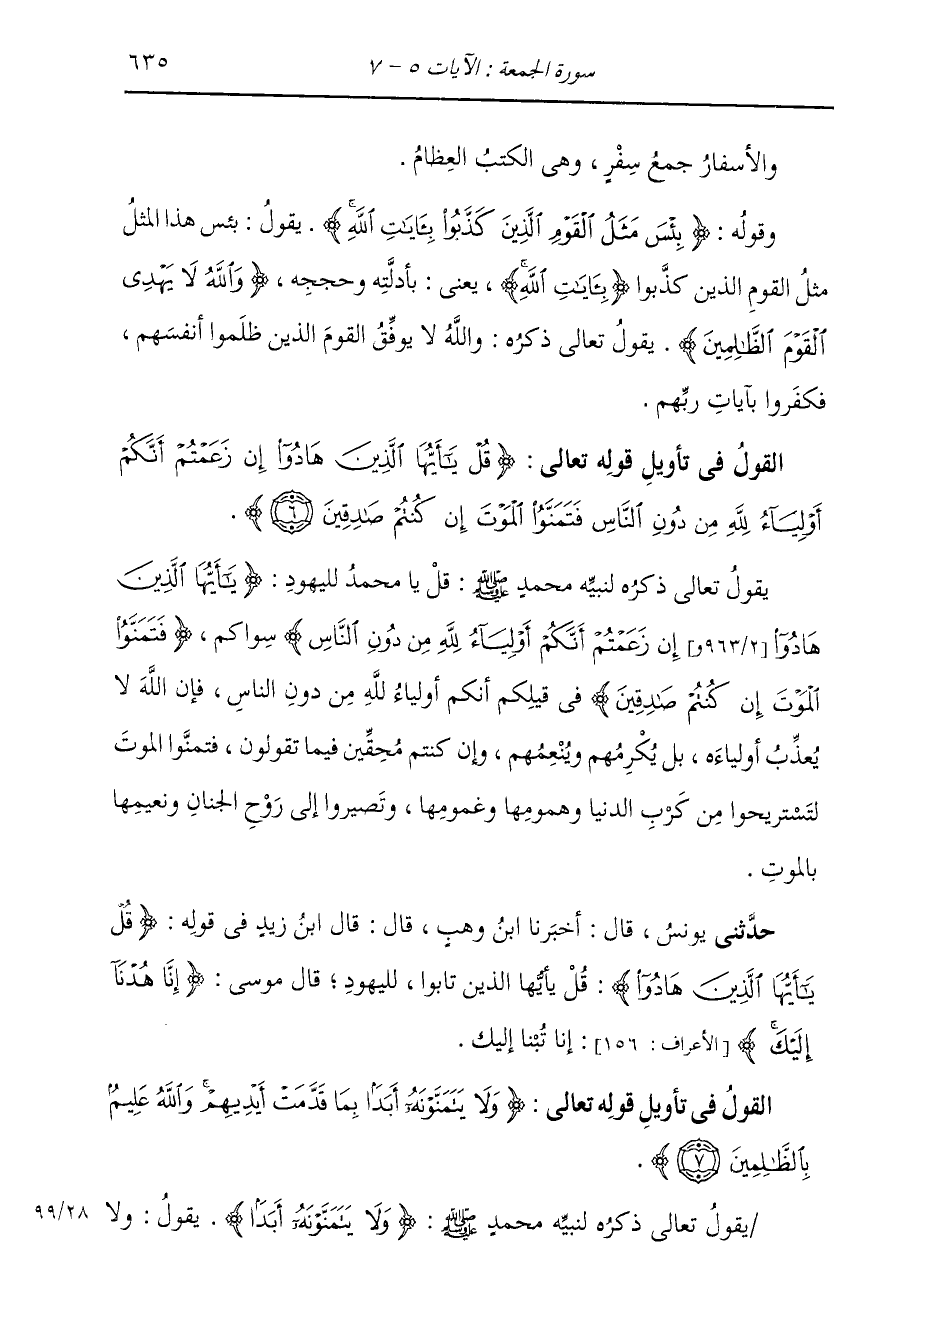 سورة الجمعة : الآيات ٥ - ٧ ٦٣٥
والأسفارُ جمعُ سِفْرٍ ، وهى الكتبُ العِظامُ .
وقولُه : ﴿ بِئْسَ مَثَلُ ٱلْقَوْمِ ٱلَّذِينَ كَذَّبُوا۟ بِـَٔايَـٰتِ ٱللَّهِۚ ﴾ . يقولُ : بئس هذا المثلُ
مثلُ القومِ الذين كذَّبوا ﴿ بِـَٔايَـٰتِ ٱللَّهِۚ ﴾ ، يعنى : بأدلَّتِه وحججِه ، ﴿ وَٱللَّهُ لَا يَهْدِى
ٱلْقَوْمَ ٱلظَّـٰلِمِينَ ﴾ . يقولُ تعالى ذكرُه : واللَّهُ لا يوفِّقُ القومَ الذين ظلَموا أنفسَهم ،
فكفَروا بآياتِ ربِّهم .
القولُ فى تأويلِ قولِه تعالى : ﴿ قُلْ يَـٰٓأَيُّهَا ٱلَّذِينَ هَادُوٓا۟ إِن زَعَمْتُمْ أَنَّكُمْ
أَوْلِيَآءُ لِلَّهِ مِن دُونِ ٱلنَّاسِ فَتَمَنَّوُا۟ ٱلْمَوْتَ إِن كُنتُمْ صَـٰدِقِينَ ٦ ﴾ .
يقولُ تعالى ذكرُه لنبيِّه محمدٍ ﷺ : قلْ يا محمدُ لليهودِ : ﴿ يَـٰٓأَيُّهَا ٱلَّذِينَ
هَادُوٓا۟ [٩٦٣/٢و] إِن زَعَمْتُمْ أَنَّكُمْ أَوْلِيَآءُ لِلَّهِ مِن دُونِ ٱلنَّاسِ ﴾ سِواكم ، ﴿ فَتَمَنَّوُا۟
ٱلْمَوْتَ إِن كُنتُمْ صَـٰدِقِينَ ﴾ فى قيلِكم أنكم أولياءُ للَّهِ مِن دونِ الناسِ ، فإن اللَّهَ لا
يُعذِّبُ أولياءَه ، بل يُكْرِمُهم ويُنْعِمُهم ، وإن كنتم مُحِقِّين فيما تقولون ، فتمنَّوا الموتَ
لتَسْتريحوا مِن كَرْبِ الدنيا وهمومِها وغمومِها ، وتَصيروا إلى رَوْحِ الجنانِ ونعيمِها
بالموتِ .
حدَّثنى يونسُ ، قال : أخبَرنا ابنُ وهبٍ ، قال : قال ابنُ زيدٍ فى قولِه : ﴿ قُلْ
يَـٰٓأَيُّهَا ٱلَّذِينَ هَادُوٓا۟ ﴾ : قُلْ يأيُّها الذين تابوا ، لليهودِ ؛ قال موسى : ﴿ إِنَّا هُدْنَآ
إِلَيْكَۚ ﴾ [الأعراف : ١٥٦] : إنا تُبْنا إليك .
القولُ فى تأويلِ قولِه تعالى : ﴿ وَلَا يَتَمَنَّوْنَهُۥٓ أَبَدًۢا بِمَا قَدَّمَتْ أَيْدِيهِمْۚ وَٱللَّهُ عَلِيمٌۢ
بِٱلظَّـٰلِمِينَ ٧ ﴾ .
/يقولُ تعالى ذكرُه لنبيِّه محمدٍ ﷺ : ﴿ وَلَا يَتَمَنَّوْنَهُۥٓ أَبَدًۢا ﴾ . يقولُ : ولا ٩٩/٢٨